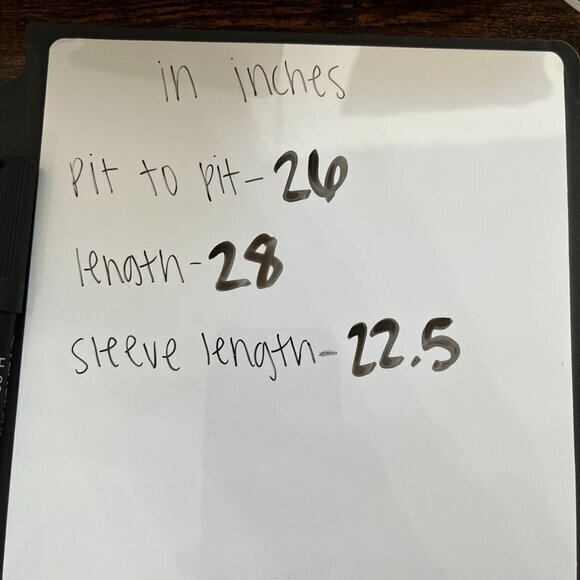 in inches
pit to pit- 26
length- 28
sleeve length- 22.5